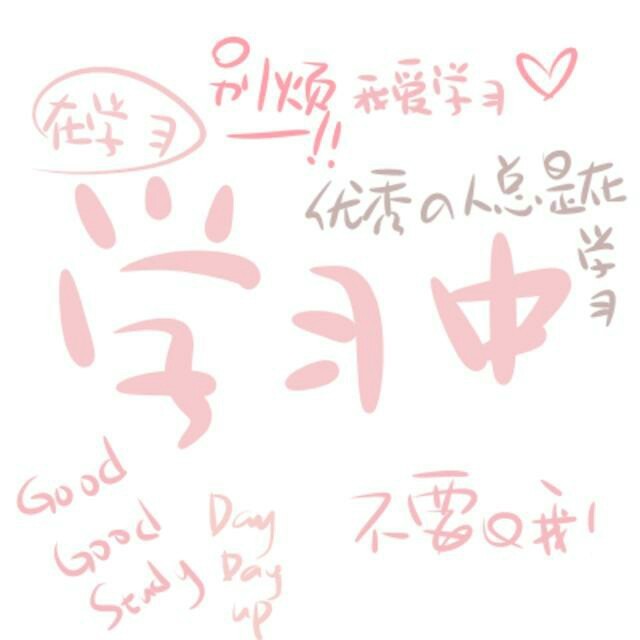 别烦!!
我爱学习
在学习
优秀の人总是在
学习
学习中
Good
Good
Study
Day
Day
up
不要Q我!